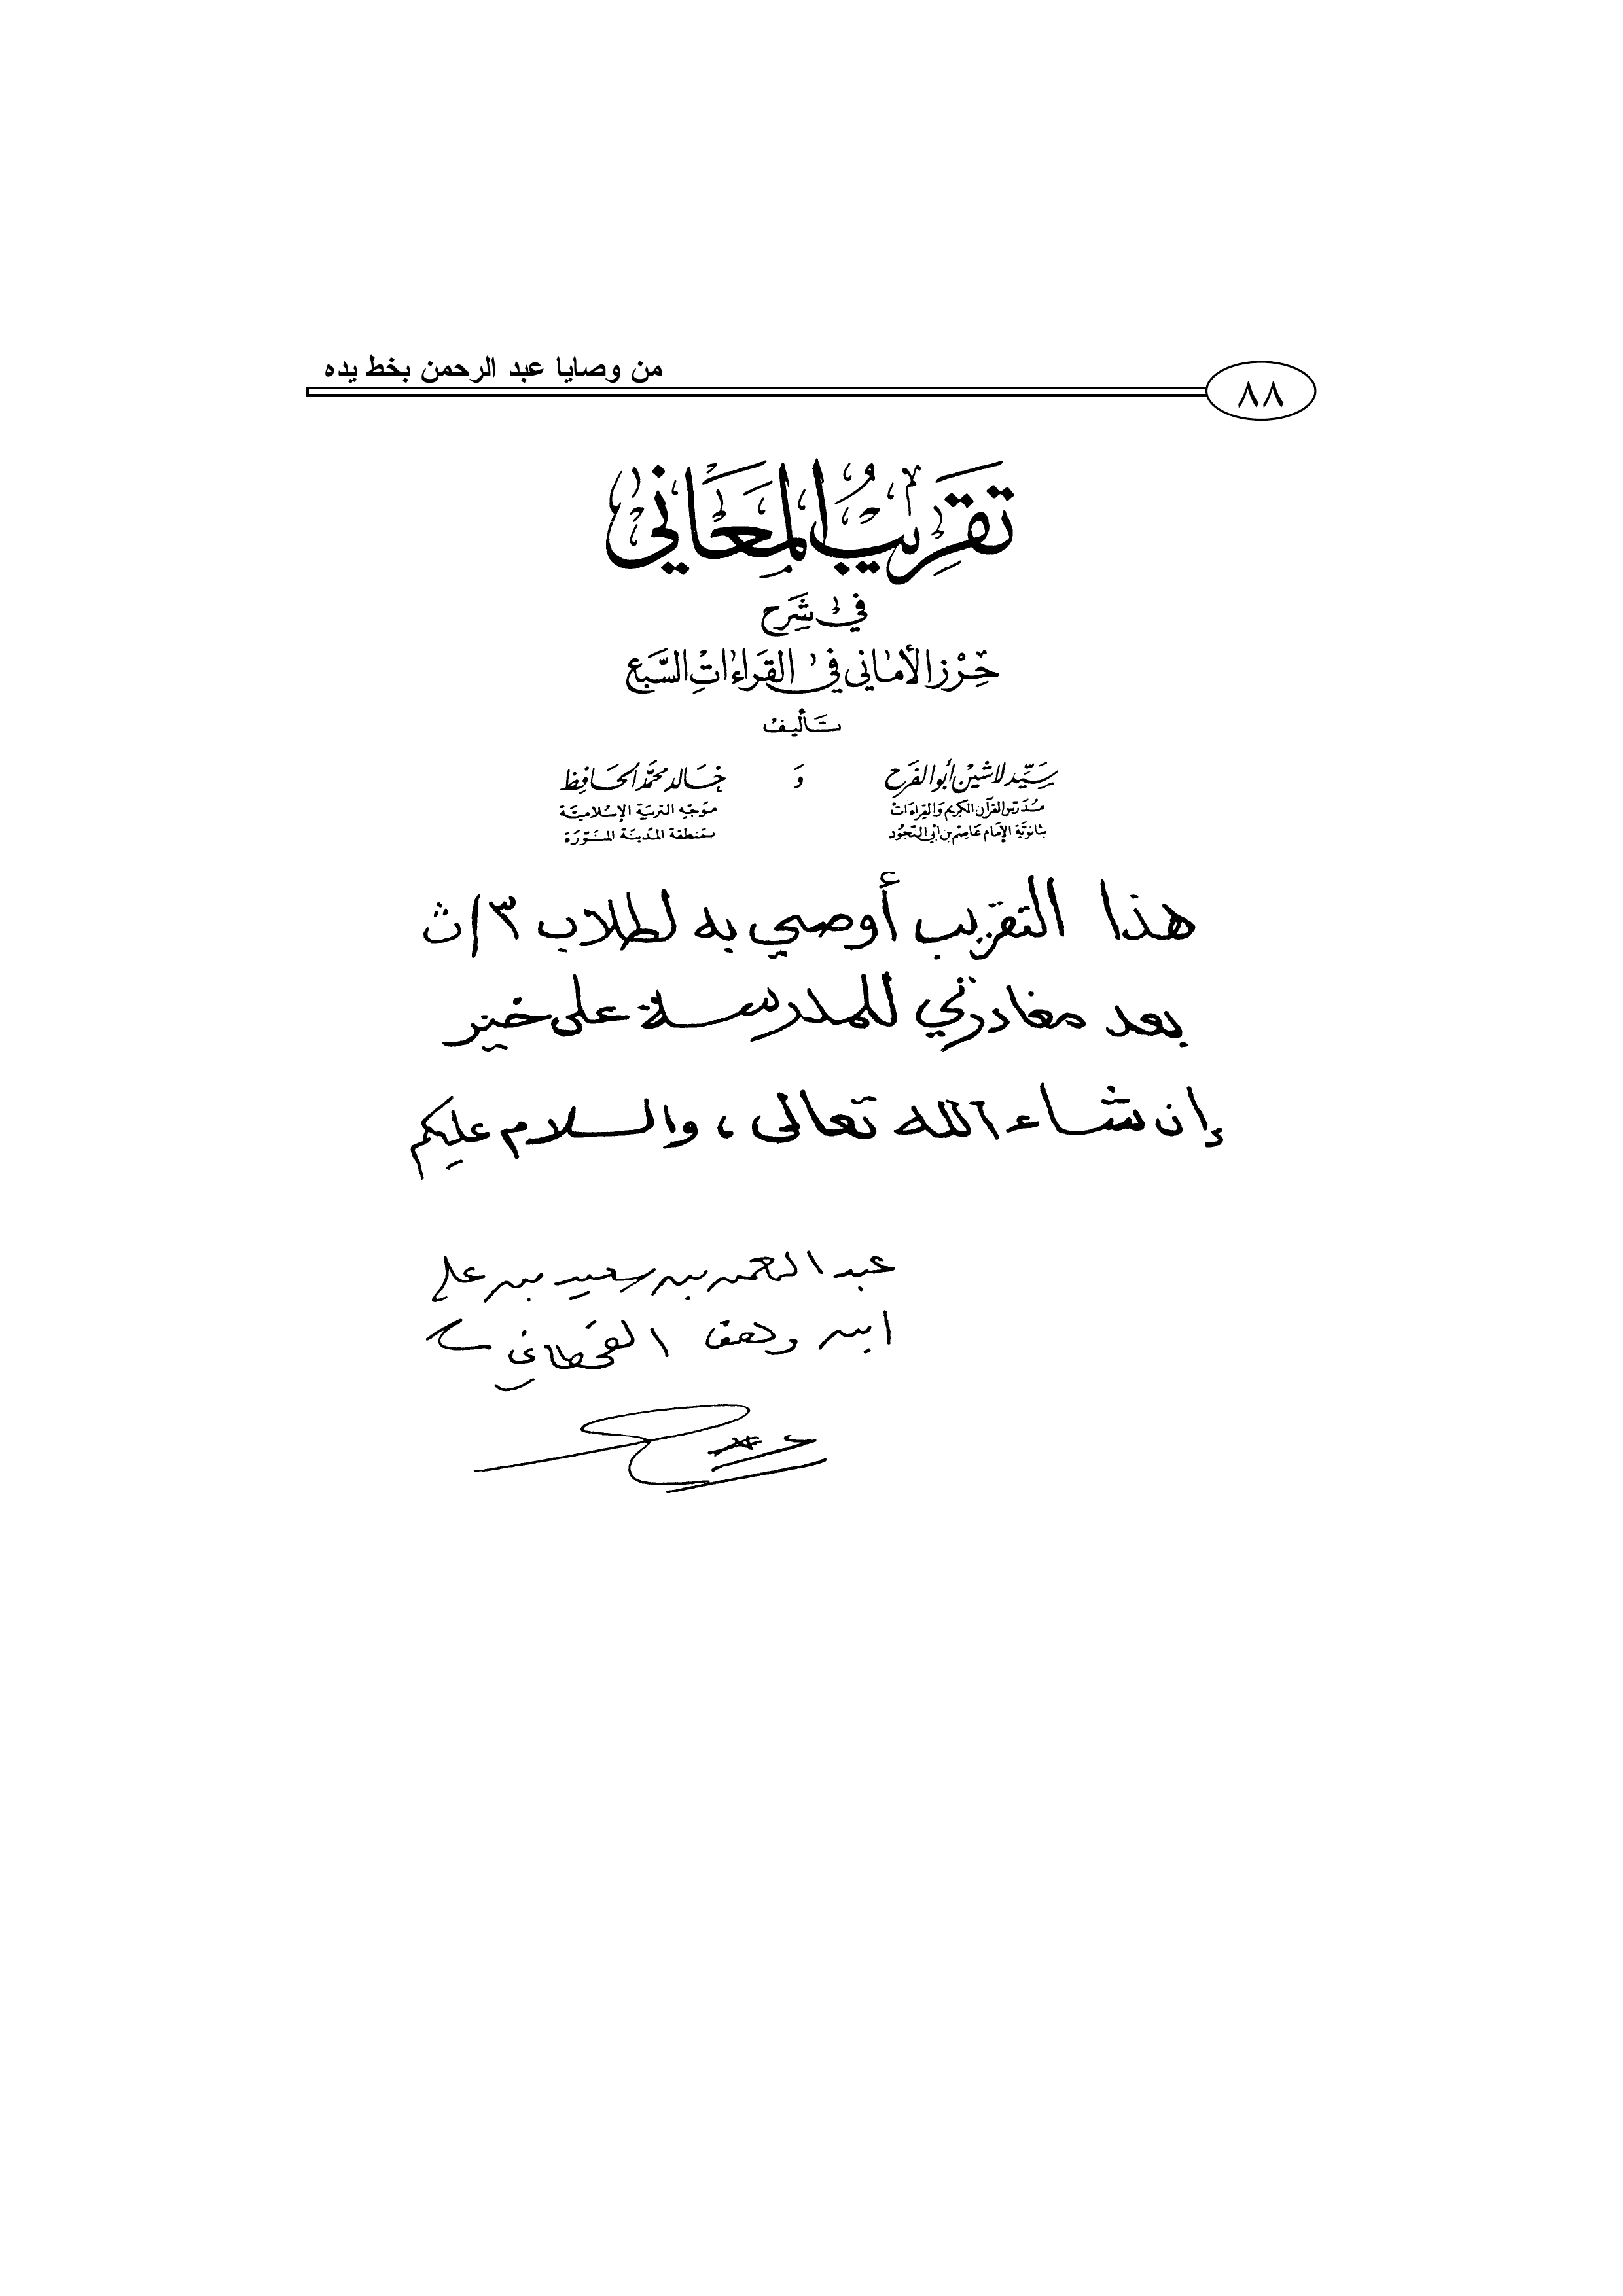 من وصايا عبد الرحمن بخط يده
٨٨
تَقرِيبُ المَعَاني
في شَرح
حِرْز الأماني في القراءات السَّبع
تأليف
سَيِّد لاشين أبو الفرح وَ خَالد محمَّد الحَافِظ
مُدَرّس القرآن الكريم وَالقراءات موَجّه التربية الإسْلاميَّة
بثانويَّة الإمَام عَاصِم بن أبي النّجُود بمَنطقة المَدينَة المنَوَّرَة
هذا التقريب أوصي به لطلاب ٣/ث
بعد مغادرتي للمدرسة على خير
إن شاء الله تعالى، والسلام عليكم
عبد الرحمن بن سعيد بن علي
ابن وهف القحطاني